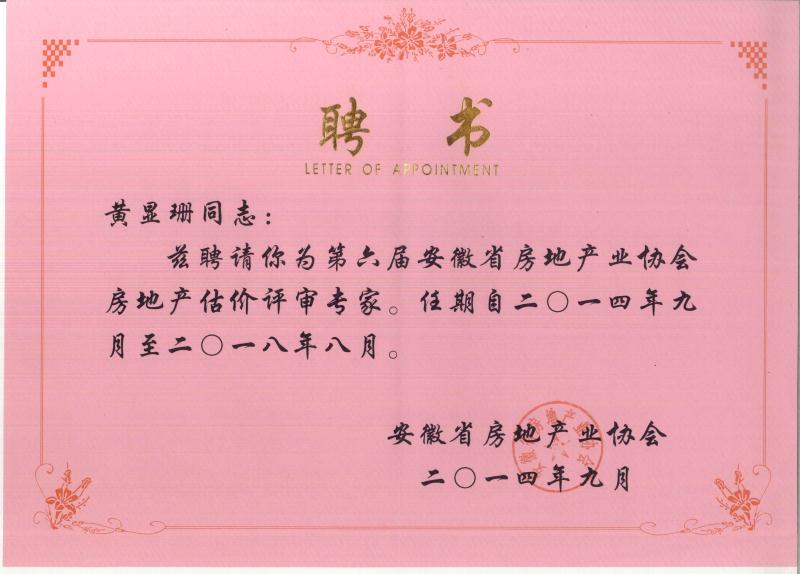 聘 书
LETTER OF APPOINTMENT
黄显珊同志:
兹聘请你为第六届安徽省房地产业协会
房地产估价评审专家。任期自二〇一四年九
月至二〇一八年八月。
安徽省房地产业协会
二〇一四年九月